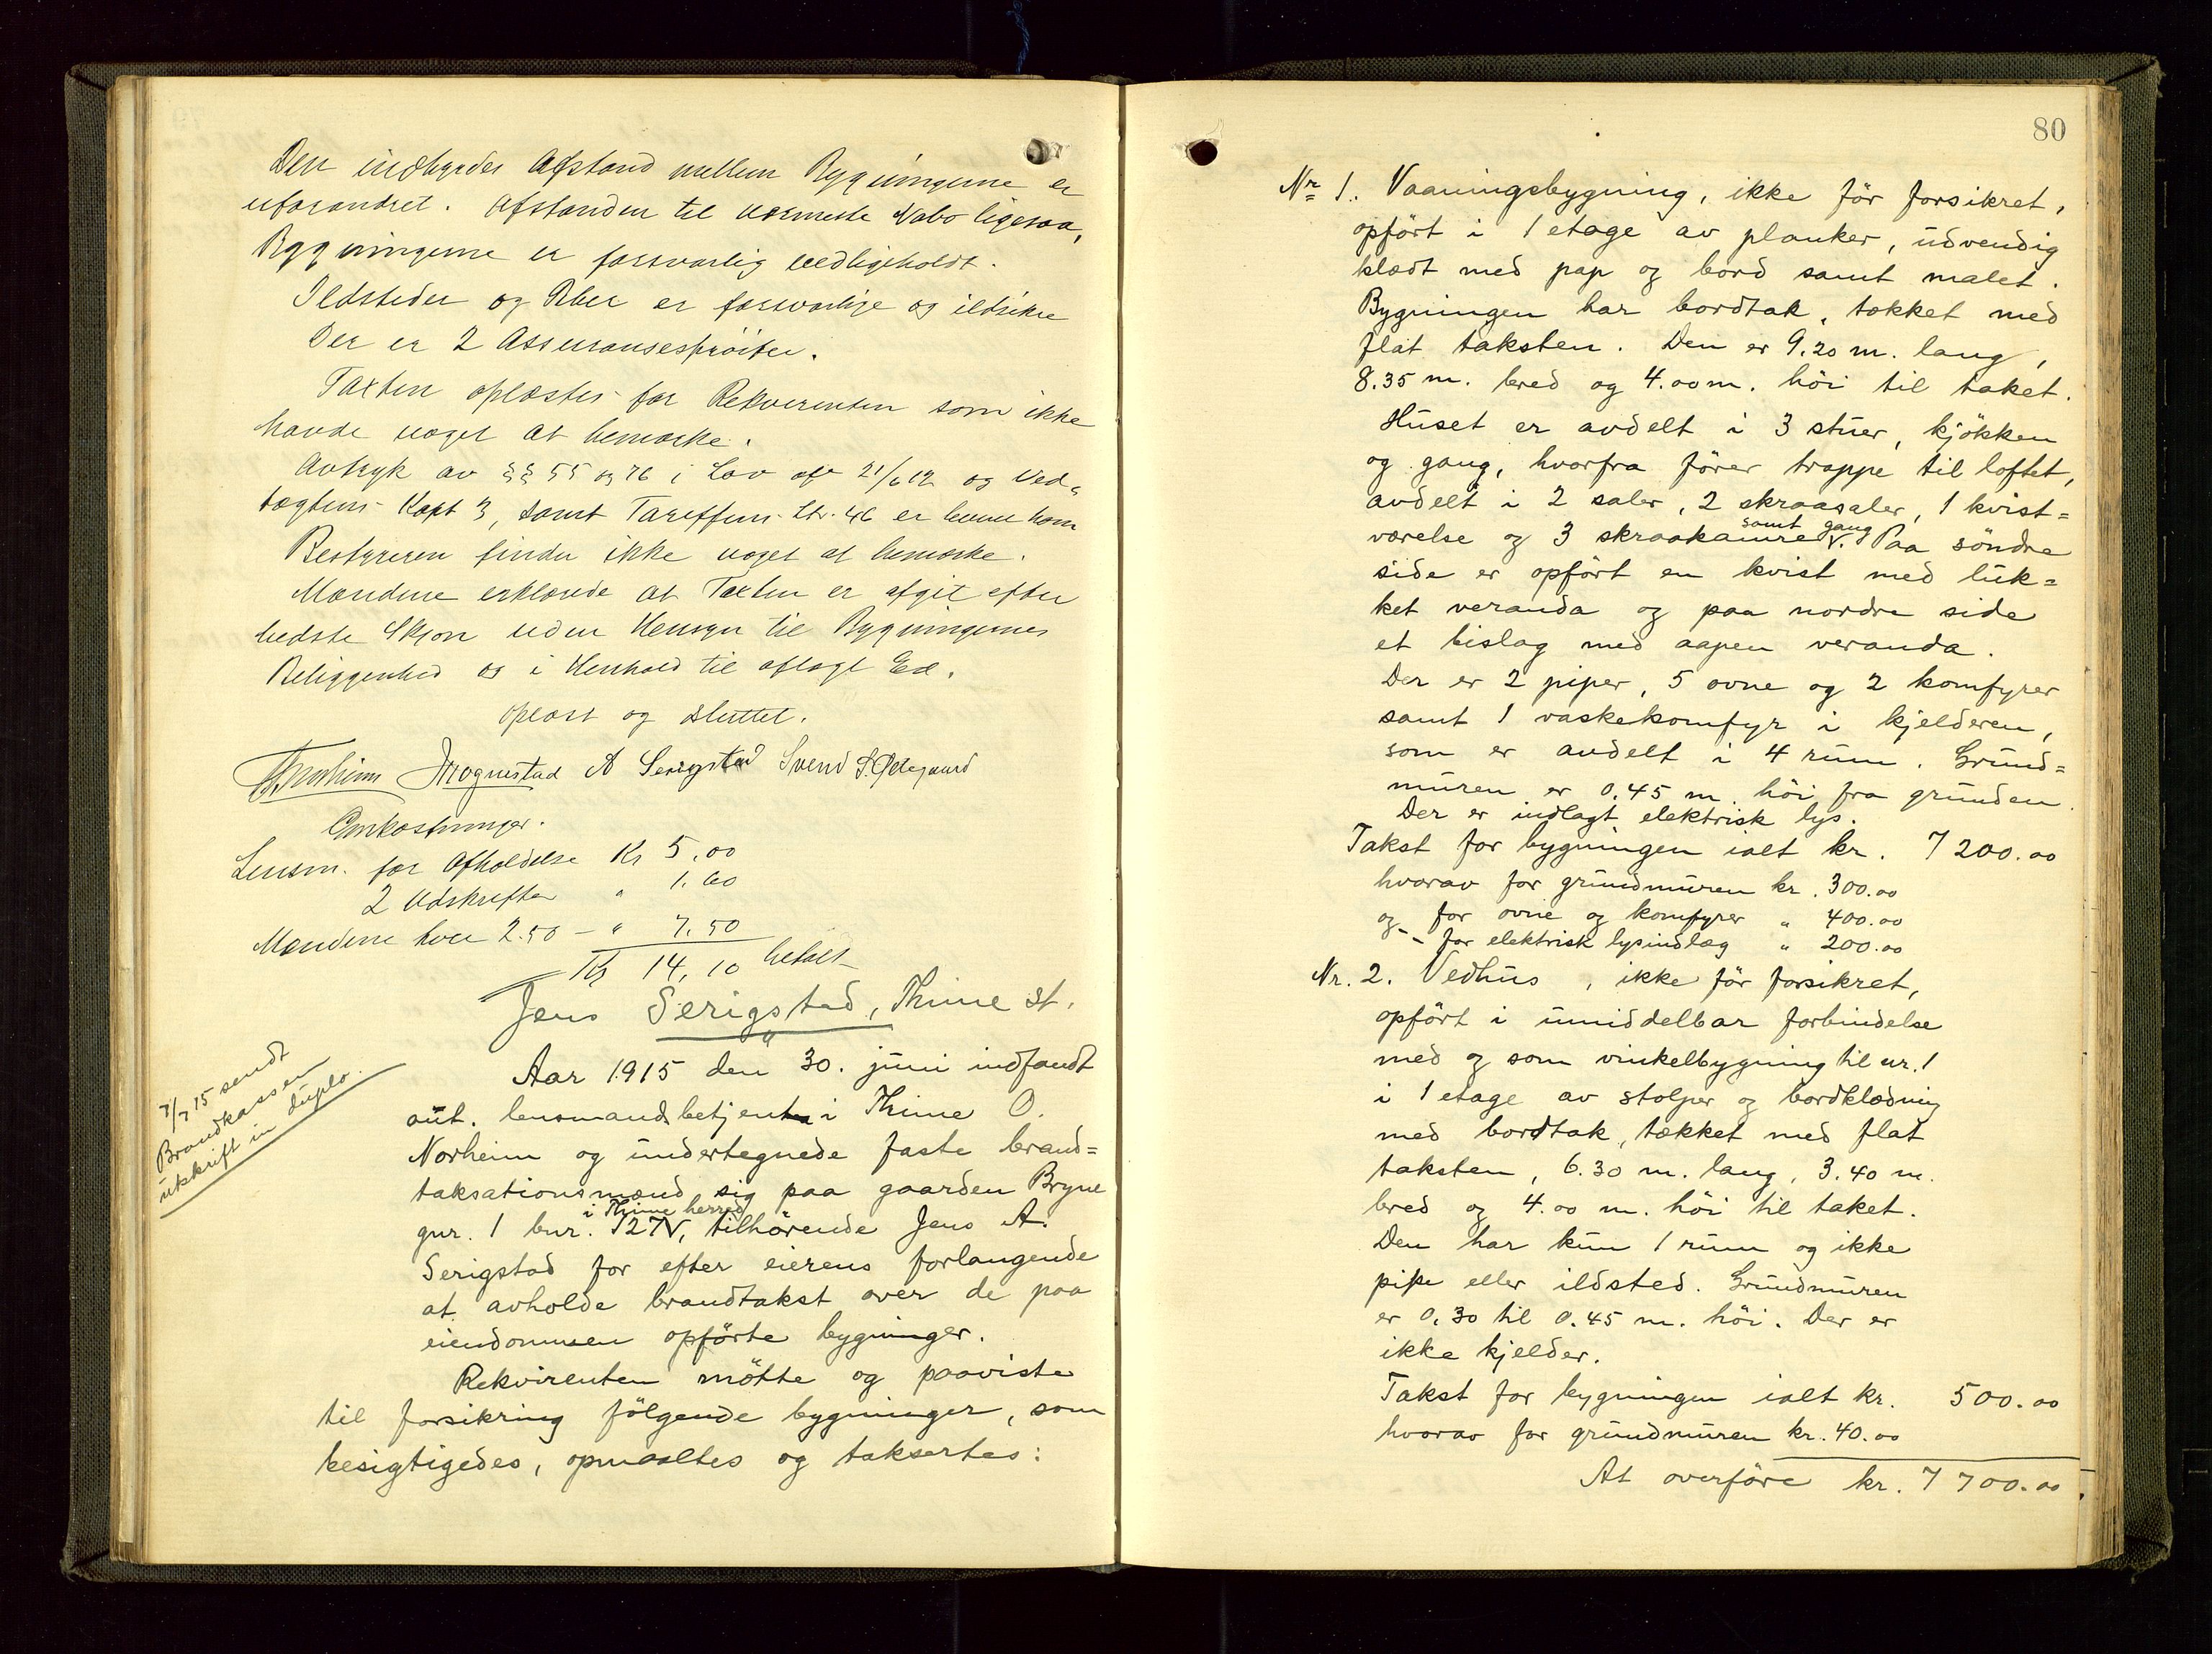 Den indbyrdes Afstand mellem Bygningerne er
uforandret. Afstanden til nærmeste Nabo ligesaa,
Bygningerne er forsvarlig vedligeholdt.
Ildsteder og Piber er forsvarlige og ildsikre
Der er 2 Assuransesprøiter.
Taxten oplæstes for Rekvirenten som ikke
havde noget at bemærke.
Avtryk av §§ 55 og 76 i Lov af 21/6 12 og Ved-
tægtens Kapt 3, samt Tariffens Ltr. 46 er levert ham
Bestyreren finder ikke noget at bemærke.
Mændene erklærede at Taxten er afgit efter
bedste Skjøn uden Hensyn til Bygningernes
Beliggenhed og i Henhold til aflagt Ed.
oplæst og sluttet.
Norheim Mognestad A Serigstad Svend S. Ødegaard
Omkostninger.
Lensm. for Afholdelse Kr 5.00
2 Udskrifter " 1.60
Mændene hver 2.50 - " 7.50
Kr 14,10 betalt
Jens Serigstad, Thime st.
7/7 15 sendt
Brandkassen
utskrift in duplo.
Aar 1915 den 30. juni indfandt
aut. lensmandsbetjent i Thime O.
Norheim og undertegnede faste brand=
taksationsmænd sig paa gaarden Bryne
i Thime herred
gnr. 1 bnr. 127 V, tilhörende Jens A.
Serigstad for efter eierens forlangende
at avholde brandtakst over de paa
eiendommen opförte bygninger.
Rekvirenten mötte og paaviste
til forsikring fölgende bygninger, som
besigtigedes, opmaaltes og taksertes:
80
Nr 1. Vaaningsbygning, ikke för forsikret,
opfört i 1 etage av planker, udvendig
klædt med pap og bord samt malet.
Bygningen har bordtak, tækket med
flat taksten. Den er 9.20 m. lang,
8.35 m. bred og 4.00 m. höi til taket.
Huset er avdelt i 3 stuer, kjökken
og gang, hvorfra förer trappe til loftet,
avdelt i 2 saler, 2 skraasaler, 1 kvist=
samt gang
værelse og 3 skraakamre V. Paa söndre
side er opfört en kvist med luk=
ket veranda og paa nordre side
et bislag med aapen veranda.
Der er 2 piper, 5 ovne og 2 komfyrer
samt 1 vaskekomfyr i kjelderen,
som er avdelt i 4 rum. Grund=
muren er 0.45 m. höi fra grunden.
Der er indlagt elektrisk lys.
Takst for bygningen ialt kr. 7 200.00
hvorav for grundmuren kr. 300.00
og for ovne og komfyrer " 400.00
- - for elektrisk lysindlæg " 200.00
Nr. 2. Vedhus, ikke för forsikret,
opfört i umiddelbar forbindelse
med og som vinkelbygning til nr. 1
i 1 etage av stolper og bordklædning
med bordtak, tækket med flat
taksten, 6.30 m. lang, 3.40 m.
bred og 4.00 m. höi til taket.
Den har kun 1 rum og ikke
pipe eller ildsted. Grundmuren
er 0.30 til 0.45 m. höi. Der er
ikke kjelder.
Takst for bygningen ialt kr. 500.00
hvorav for grundmuren kr. 40.00
At overföre kr. 7 700.00